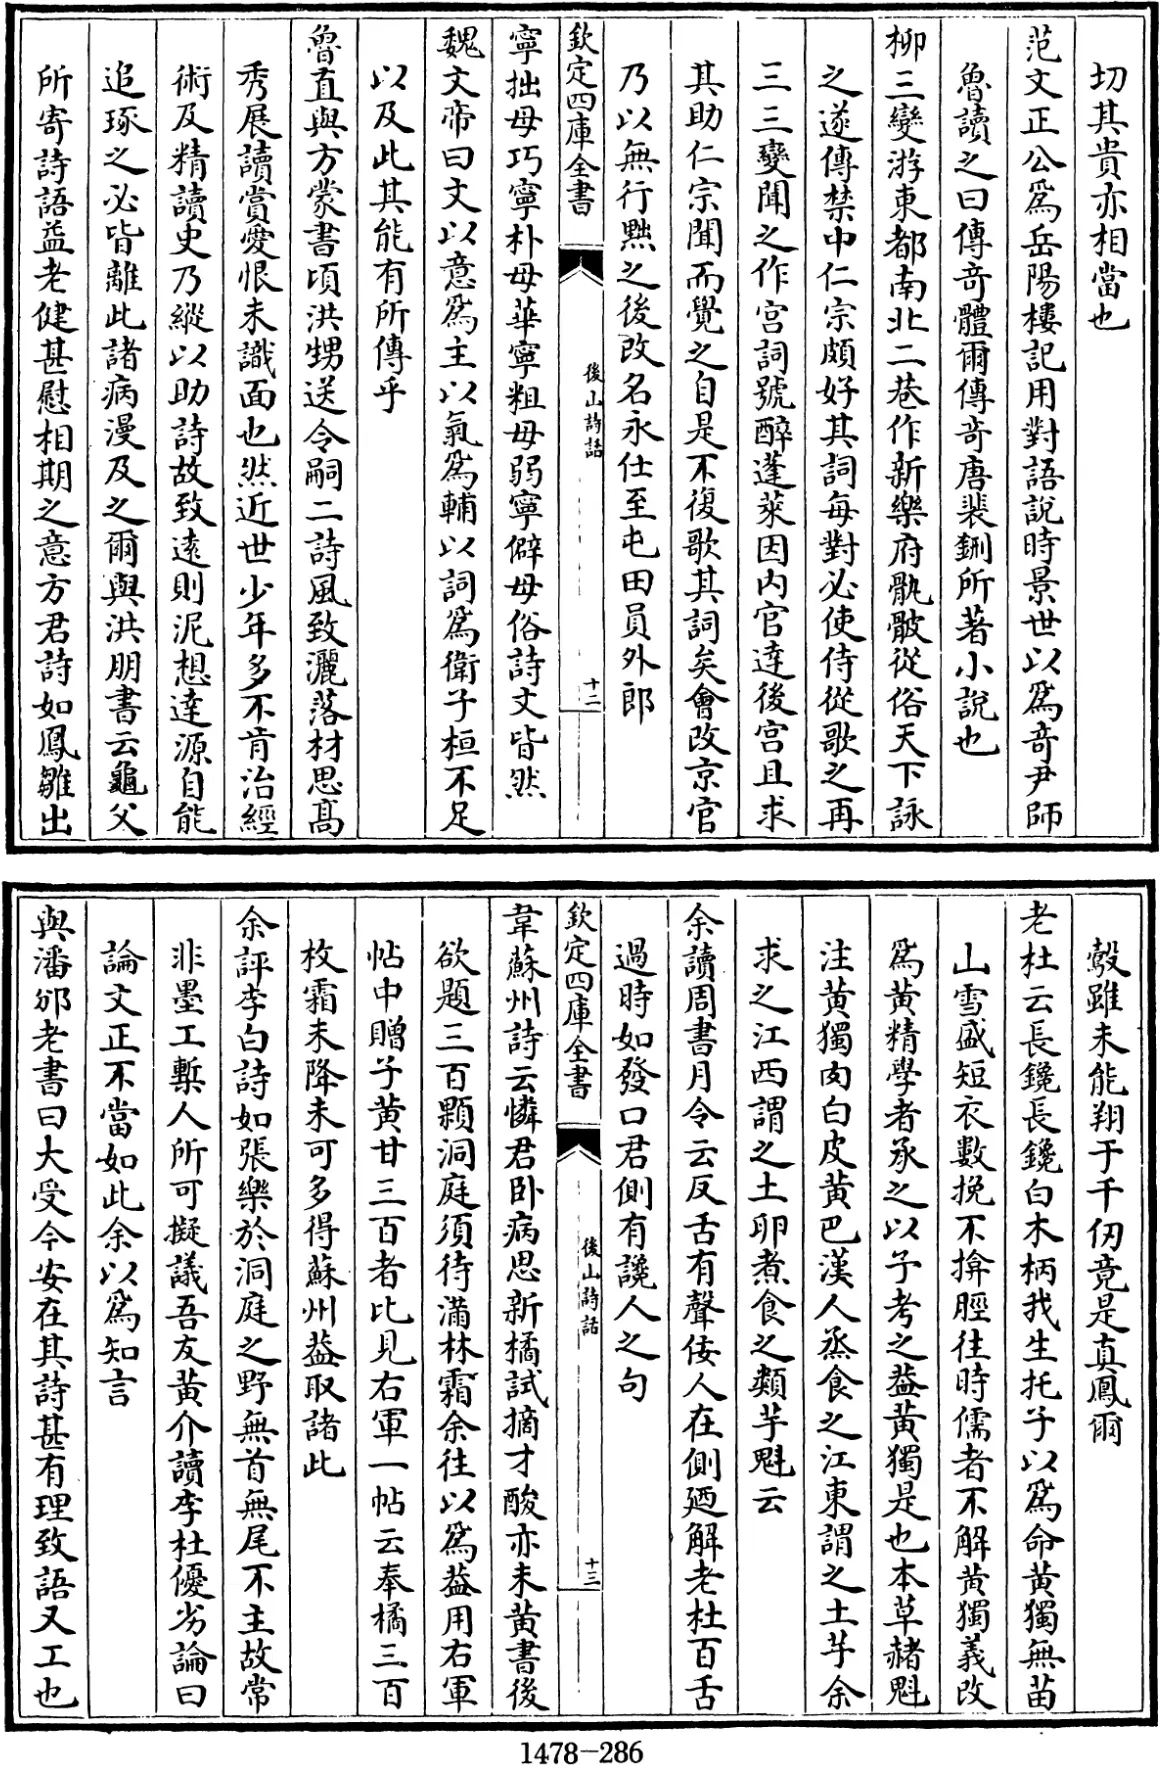 切其貴亦相當也
范文正公爲岳陽樓記用對語說時景世以爲奇尹師
魯讀之曰傳奇體爾傳奇唐裴鉶所著小說也
柳三變游東都南北二巷作新樂府骫骳從俗天下詠
之遂傳禁中仁宗頗好其詞每對必使侍從歌之再
三三變聞之作宮詞號醉蓬萊因内官達後宮且求
其助仁宗聞而覺之自是不復歌其詞矣會改京官
乃以無行黜之後改名永仕至屯田員外郎
欽定四庫全書
後山詩話
十二
寧拙毋巧寧朴毋華寧粗毋弱寧僻毋俗詩文皆然
魏文帝曰文以意爲主以氣爲輔以詞爲衛子桓不足
以及此其能有所傳乎
魯直與方蒙書頃洪甥送令嗣二詩風致灑落材思髙
秀展讀賞愛恨未識面也然近世少年多不肯治經
術及精讀史乃縱以助詩故致遠則泥想達源自能
追琢之必皆離此諸病漫及之爾與洪朋書云龜父
所寄詩語益老健甚慰相期之意方君詩如鳳雛出
鷇雖未能翔于千仞竟是真鳳爾
老杜云長鑱長鑱白木柄我生托子以爲命黄獨無苗
山雪盛短衣數挽不揜脛往時儒者不解黄獨義改
爲黄精學者承之以予考之益黄獨是也本草赭魁
注黄獨肉白皮黄巴漢人烝食之江東謂之土芋余
求之江西謂之土卵煮食之類芋魁云
余讀周書月令云反舌有聲佞人在側廼解老杜百舌
過時如發口君側有讒人之句
欽定四庫全書
後山詩話
十三
韋蘇州詩云憐君卧病思新橘試摘才酸亦未黄書後
欲題三百顆洞庭須待滿林霜余往以爲益用右軍
帖中贈子黄甘三百者比見右軍一帖云奉橘三百
枚霜未降未可多得蘇州益取諸此
余評李白詩如張樂於洞庭之野無首無尾不主故常
非墨工槧人所可擬議吾友黄介讀李杜優劣論曰
論文正不當如此余以爲知言
與潘邠老書曰大受今安在其詩甚有理致語又工也
1478—286